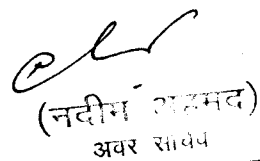 (नदीम अहमद)
अवर सचिव